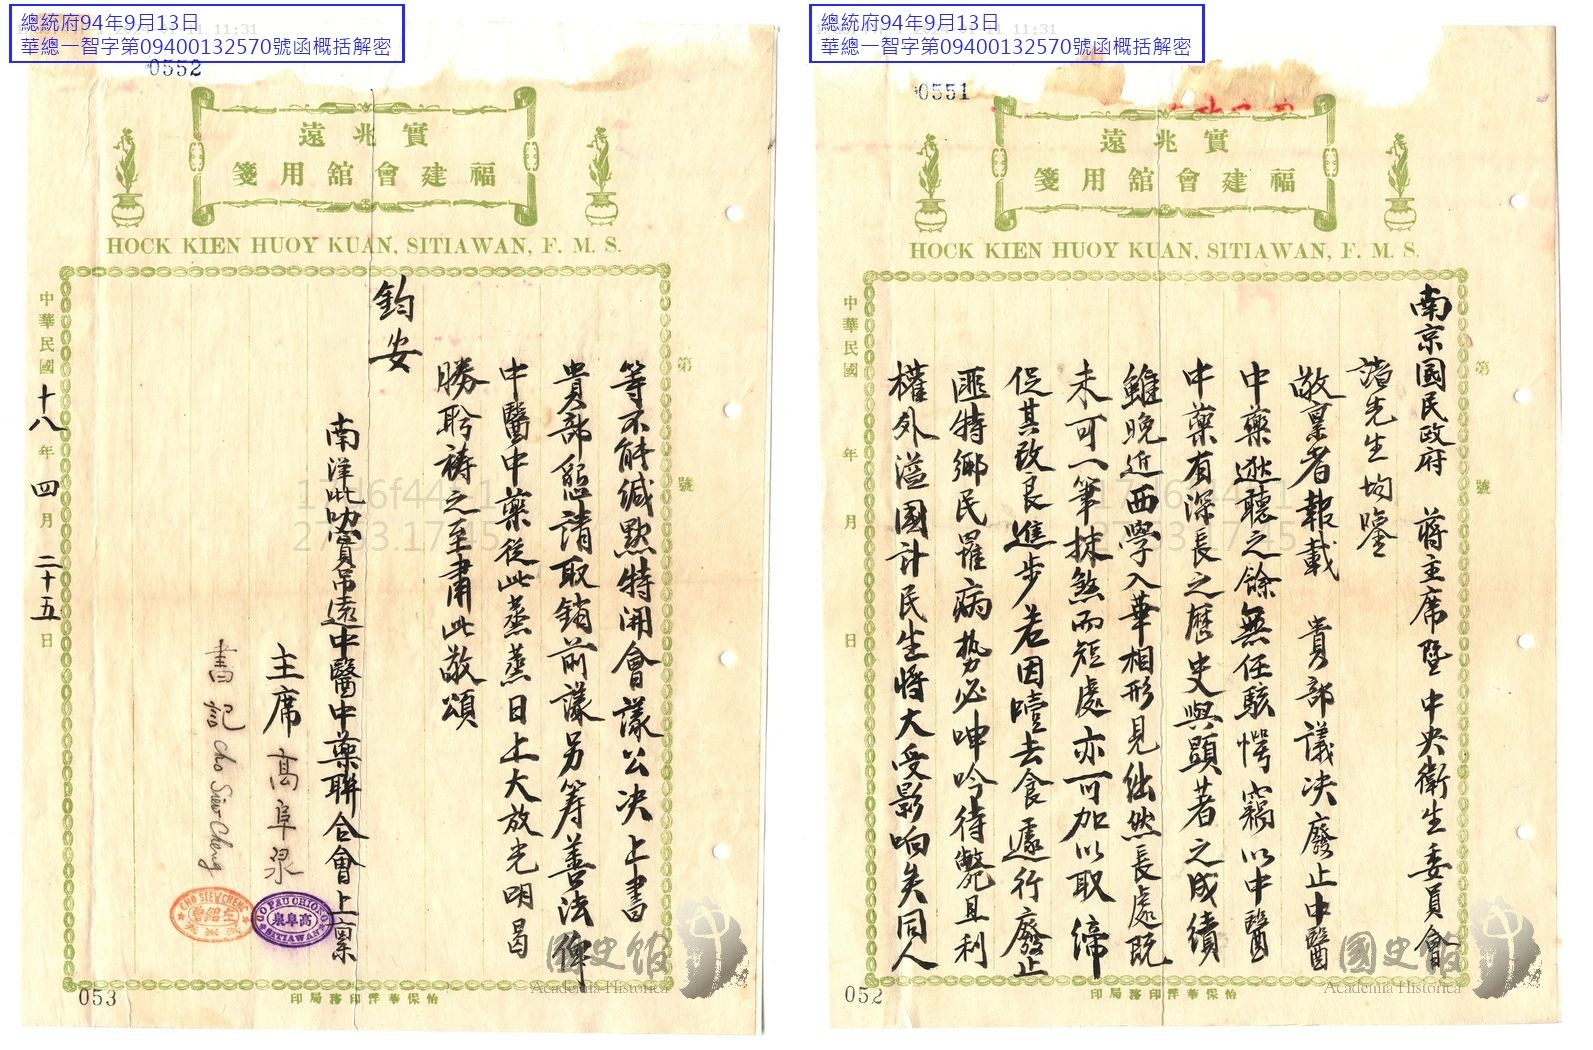 總統府94年9月13日
華總一智字第09400132570號函概括解密
0551
實兆遠
福建會舘用箋
HOCK KIEN HUOY KUAN, SITIAWAN, F. M. S.
第 號
南京國民政府 蔣主席暨中央衛生委員會
諸先生均鑒
敬稟者報載 貴部議決廢止中醫
中藥逖聽之餘無任駭愕竊以中醫
中藥有深長之歷史與顯著之成績
雖晚近西學入華相形見絀然長處既
未可一筆抹煞而短處亦可加以取締
促其改良進步若因噎去食遽行廢止
匪特鄉民罹病勢必呻吟待斃且利
權外溢國計民生將大受影响矣同人
中華民國 年 月 日
怡保華洋印務局印
052
國史館
Academia Historica
總統府94年9月13日
華總一智字第09400132570號函概括解密
0552
實兆遠
福建會舘用箋
HOCK KIEN HUOY KUAN, SITIAWAN, F. M. S.
第 號
等不能緘默特開會議公决上書
貴部懇請取銷前議另籌善法俾
中醫中藥從此蒸蒸日上大放光明曷
勝盼禱之至肅此敬頌
鈞安
南洋吡叻實吊遠中醫中藥聯合會上稟
主席 高阜泉
GO PAU CHIONG 高阜泉 SITIAWAN
書記 Cho Siew Cheng
CHO SIEW CHENG
中華民國十八年四月二十五日
怡保華洋印務局印
053
國史館
Academia Historica